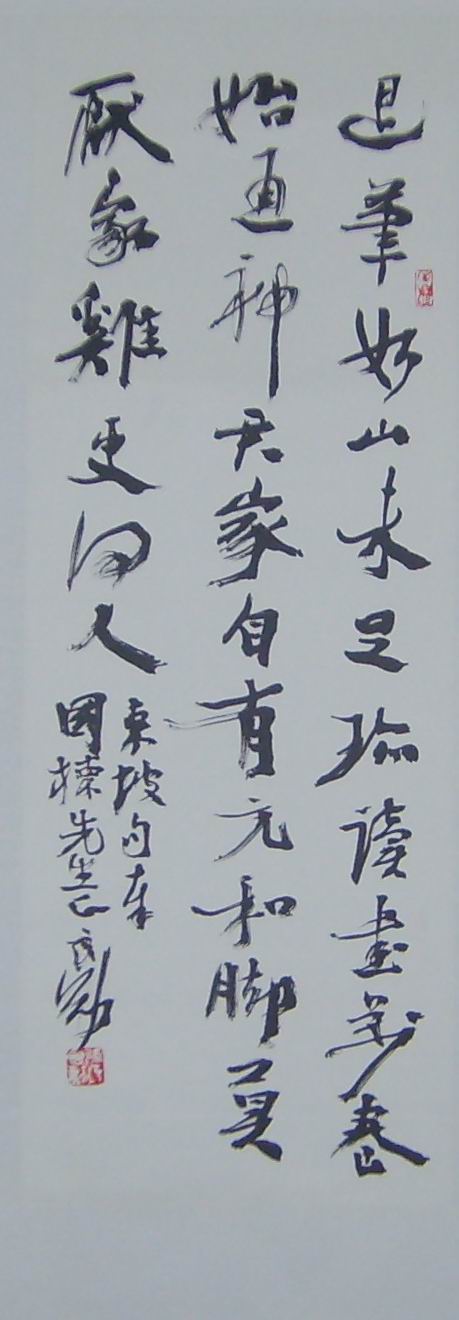 退筆如山未足珍讀書萬卷
始通神君家自有元和脚莫
厭家雞更問人
東坡句奉
國棟先生正